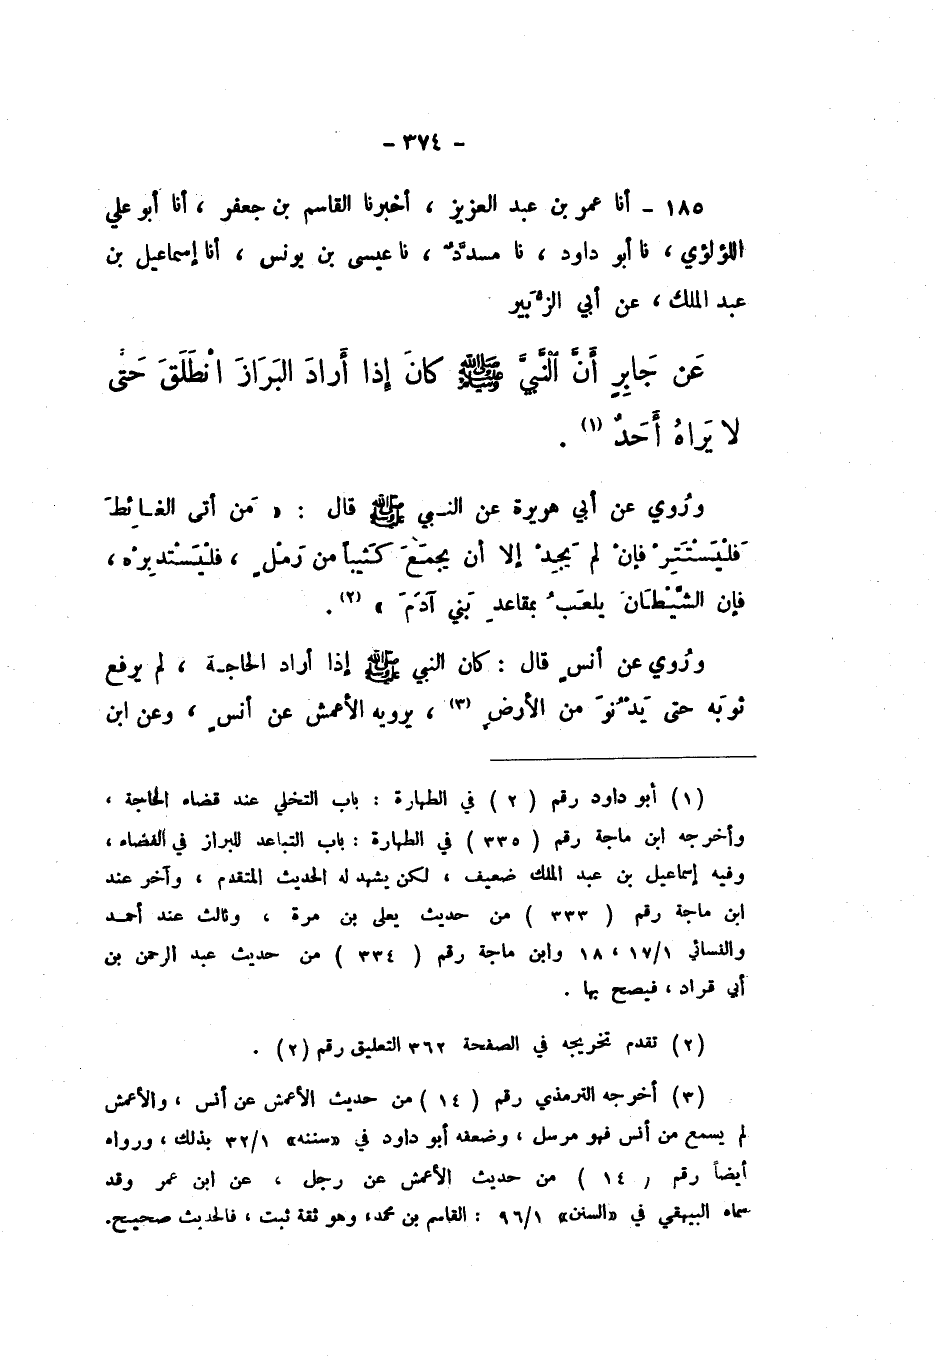 - ٣٧٤ -
١٨٥ - أنا عمر بن عبد العزيز ، أخبرنا القاسم بن جعفر ، أنا أبو علي
اللؤلؤي ، نا أبو داود ، نا مسدَّدٌ ، نا عيسى بن يونس ، أنا إسماعيل بن
عبد الملك ، عن أبي الزُّبَير
عَن جَابِرٍ أَنَّ النَّبيَّ ﷺ كانَ إذا أَرادَ البَرَازَ انْطَلَقَ حَتَّى
لا يَرَاهُ أَحَدٌ (١) .
ورُوي عن أبي هريرة عن النبي ﷺ قال : « مَن أتى الغائِطَ
فَلْيَسْتَتِرْ فإنْ لم يَجِدْ إلا أن يجمَعَ كَثيباً من رَمْلٍ ، فلْيَسْتدبِرْه ،
فإن الشَّيْطانَ يلعَبُ بمقاعدِ بَني آدَمَ » (٢) .
ورُوي عن أنسٍ قال : كان النبي ﷺ إذا أراد الحاجة ، لم يرفع
ثوبَه حتى يَدْنُوَ من الأرضِ (٣) ، يرويه الأعمش عن أنسٍ ، وعن ابن
(١) أبو داود رقم ( ٢ ) في الطهارة : باب التخلي عند قضاء الحاجة ،
وأخرجه ابن ماجة رقم ( ٣٣٥ ) في الطهارة : باب التباعد للبراز في الفضاء ،
وفيه إسماعيل بن عبد الملك ضعيف ، لكن يشهد له الحديث المتقدم ، وآخر عند
ابن ماجة رقم ( ٣٣٣ ) من حديث يعلى بن مرة ، وثالث عند أحمد
والنسائي ١٧/١ ، ١٨ وابن ماجة رقم ( ٣٣٤ ) من حديث عبد الرحمن بن
أبي قراد ، فيصح بها .
(٢) تقدم تخريجه في الصفحة ٣٦٢ التعليق رقم (٢) .
(٣) أخرجه الترمذي رقم ( ١٤ ) من حديث الأعمش عن أنس ، والأعمش
لم يسمع من أنس فهو مرسل ، وضعفه أبو داود في «سننه» ٣٢/١ بذلك ، ورواه
أيضاً رقم ( ١٤ ) من حديث الأعمش عن رجل ، عن ابن عمر وقد
سماه البيهقي في «السنن» ٩٦/١ : القاسم بن محمد، وهو ثقة ثبت ، فالحديث صحيح.